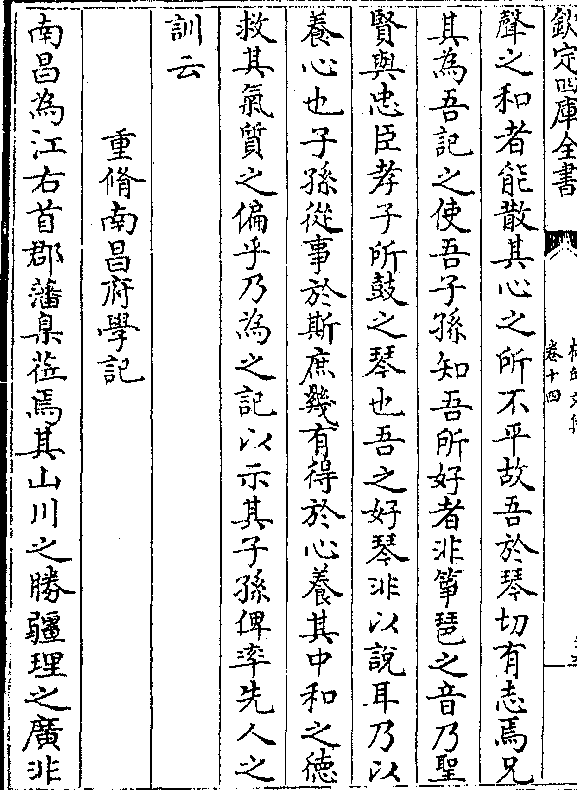 欽定四庫全書
卷十四
聲之和者能散其心之所不平故吾於琴切有志焉兄
其為吾記之使吾子孫知吾所好者非箏琶之音乃聖
賢與忠臣孝子所鼓之琴也吾之好琴非以說耳乃以
養心也子孫從事於斯庶幾有得於心養其中和之德
救其氣質之偏乎乃為之記以示其子孫俾率先人之
訓云
重脩南昌府學記
南昌為江右首郡藩臬蒞焉其山川之勝疆理之廣非